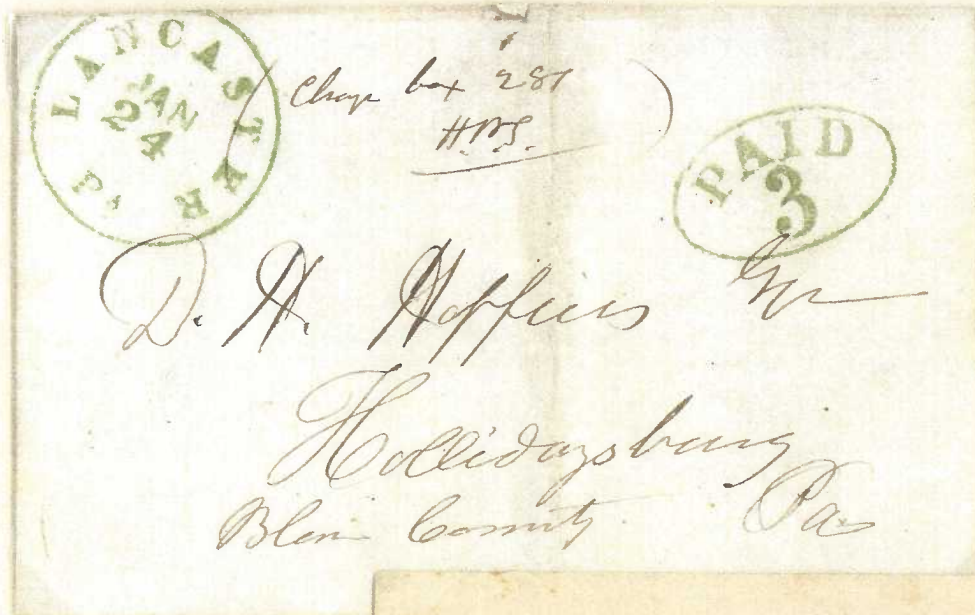 LANCASTER Pa
JAN
24
(Charge box 281
H.B.S.)
PAID
3
D. H. Hoffius Esqr
Hollidaysburg
Blair County Pa